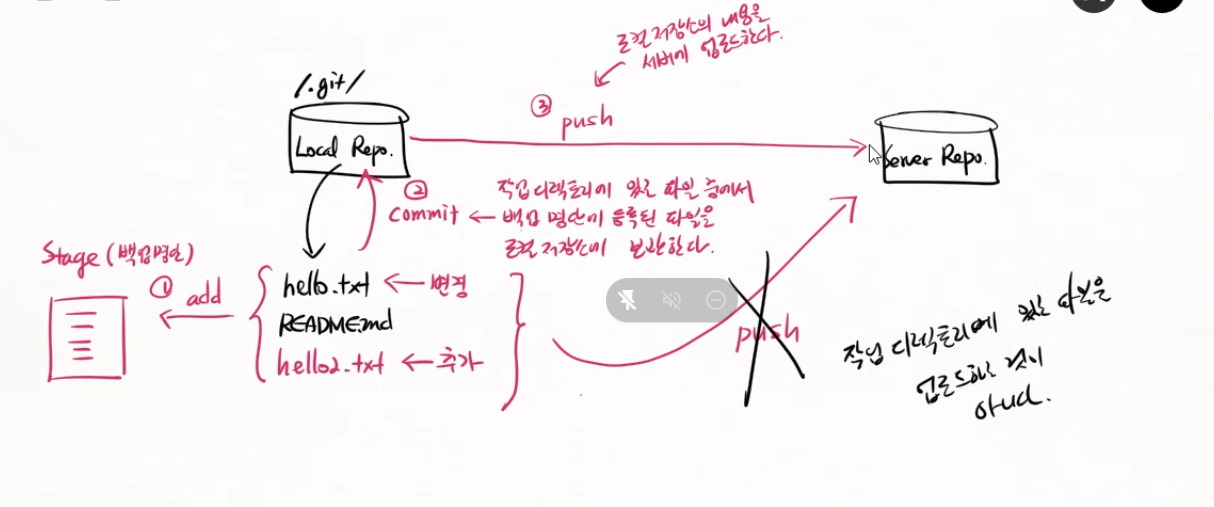 로컬 저장소의 내용을
서버에 업로드한다.
/.git/
③
push
Local Repo.
Server Repo.
②
commit ← 작업 디렉토리에 있는 파일 중에서
백업 명단에 등록된 파일을
로컬 저장소에 보관한다.
Stage (백업명단)
① add
hello.txt ← 변경
README.md
hello2.txt ← 추가
push
작업 디렉토리에 있는 파일을
업로드하는 것이
아니다.